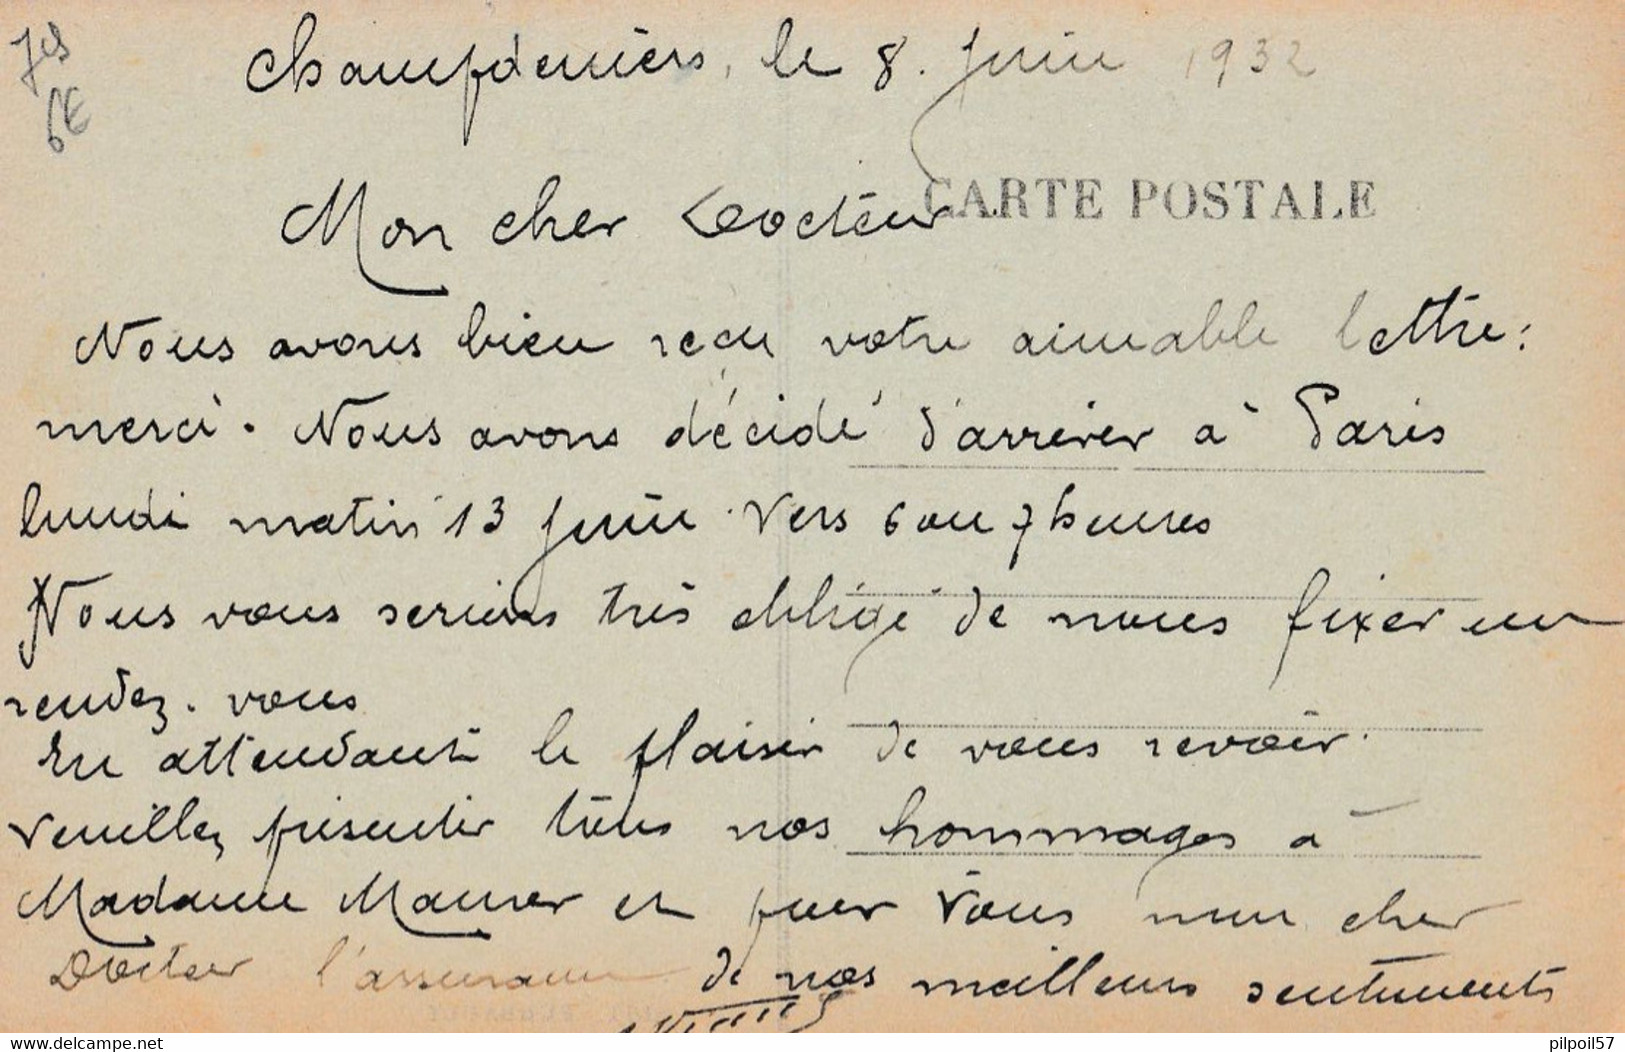 Jcs
6€
Champdeniers, le 8. Juin 1932
CARTE POSTALE
Mon cher Docteur
Nous avons bien reçu votre aimable lettre:
merci. Nous avons décidé d'arriver à Paris
lundi matin 13 Juin. Vers 6 ou 7 heures
Nous vous serions très obligé de nous fixer un
rendez-vous
En attendant le plaisir de vous revoir.
Veuillez présenter tous nos hommages à
Madame Maurer et pour Vous mon cher
Docteur l'assurance de nos meilleurs sentiments
www.delcampe.net
pilpoil57